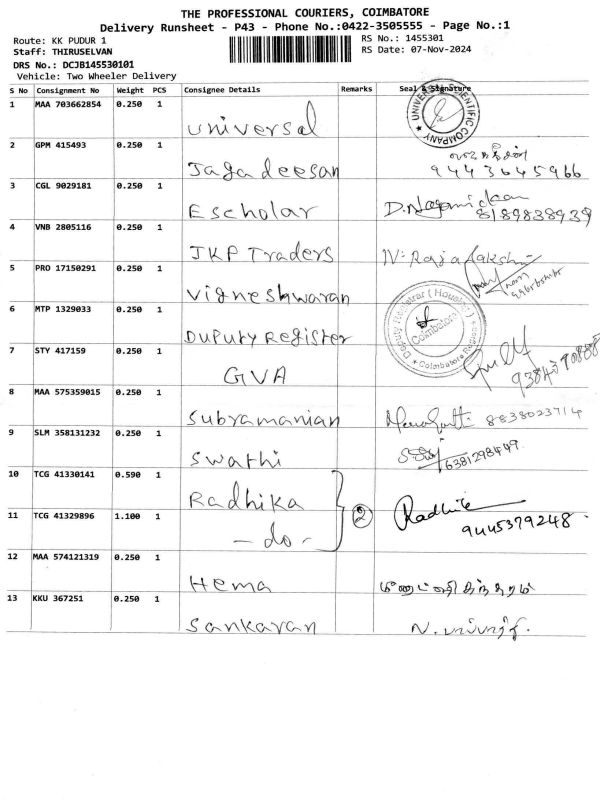 THE PROFESSIONAL COURIERS, COIMBATORE
Delivery Runsheet - P43 - Phone No.:0422-3505555 - Page No.:1
Route: KK PUDUR 1
RS No.: 1455301
Staff: THIRUSELVAN
RS Date: 07-Nov-2024
DRS No.: DCJB145530101
Vehicle: Two Wheeler Delivery
S No Consignment No Weight PCS Consignee Details Remarks Seal & Signature
1 MAA 703662854 0.250 1 Universal
UNIVERSAL SCIENTIFIC COMPANY
2 GPM 415493 0.250 1 Jagadeesan
9443645966
3 CGL 9029181 0.250 1 Escholar D.Nagamickam
8189838939
4 VNB 2805116 0.250 1 JKP Traders N. Rajalakshmi
5 PRO 17150291 0.250 1 Vigneshwaran
6 MTP 1329033 0.250 1 DUPUTY REGISTER
Deputy Registrar (Housing)
Coimbatore
Coimbatore Region
7 STY 417159 0.250 1 GVA
8 MAA 575359015 0.250 1 Subramanian 8838023714
9 SLM 358131232 0.250 1 Swathi 6381298449
10 TCG 41330141 0.590 1 Radhika
2 Radhika
11 TCG 41329896 1.100 1 - do -
9445379248
12 MAA 574121319 0.250 1 Hema
13 KKU 367251 0.250 1 Sankaran N.